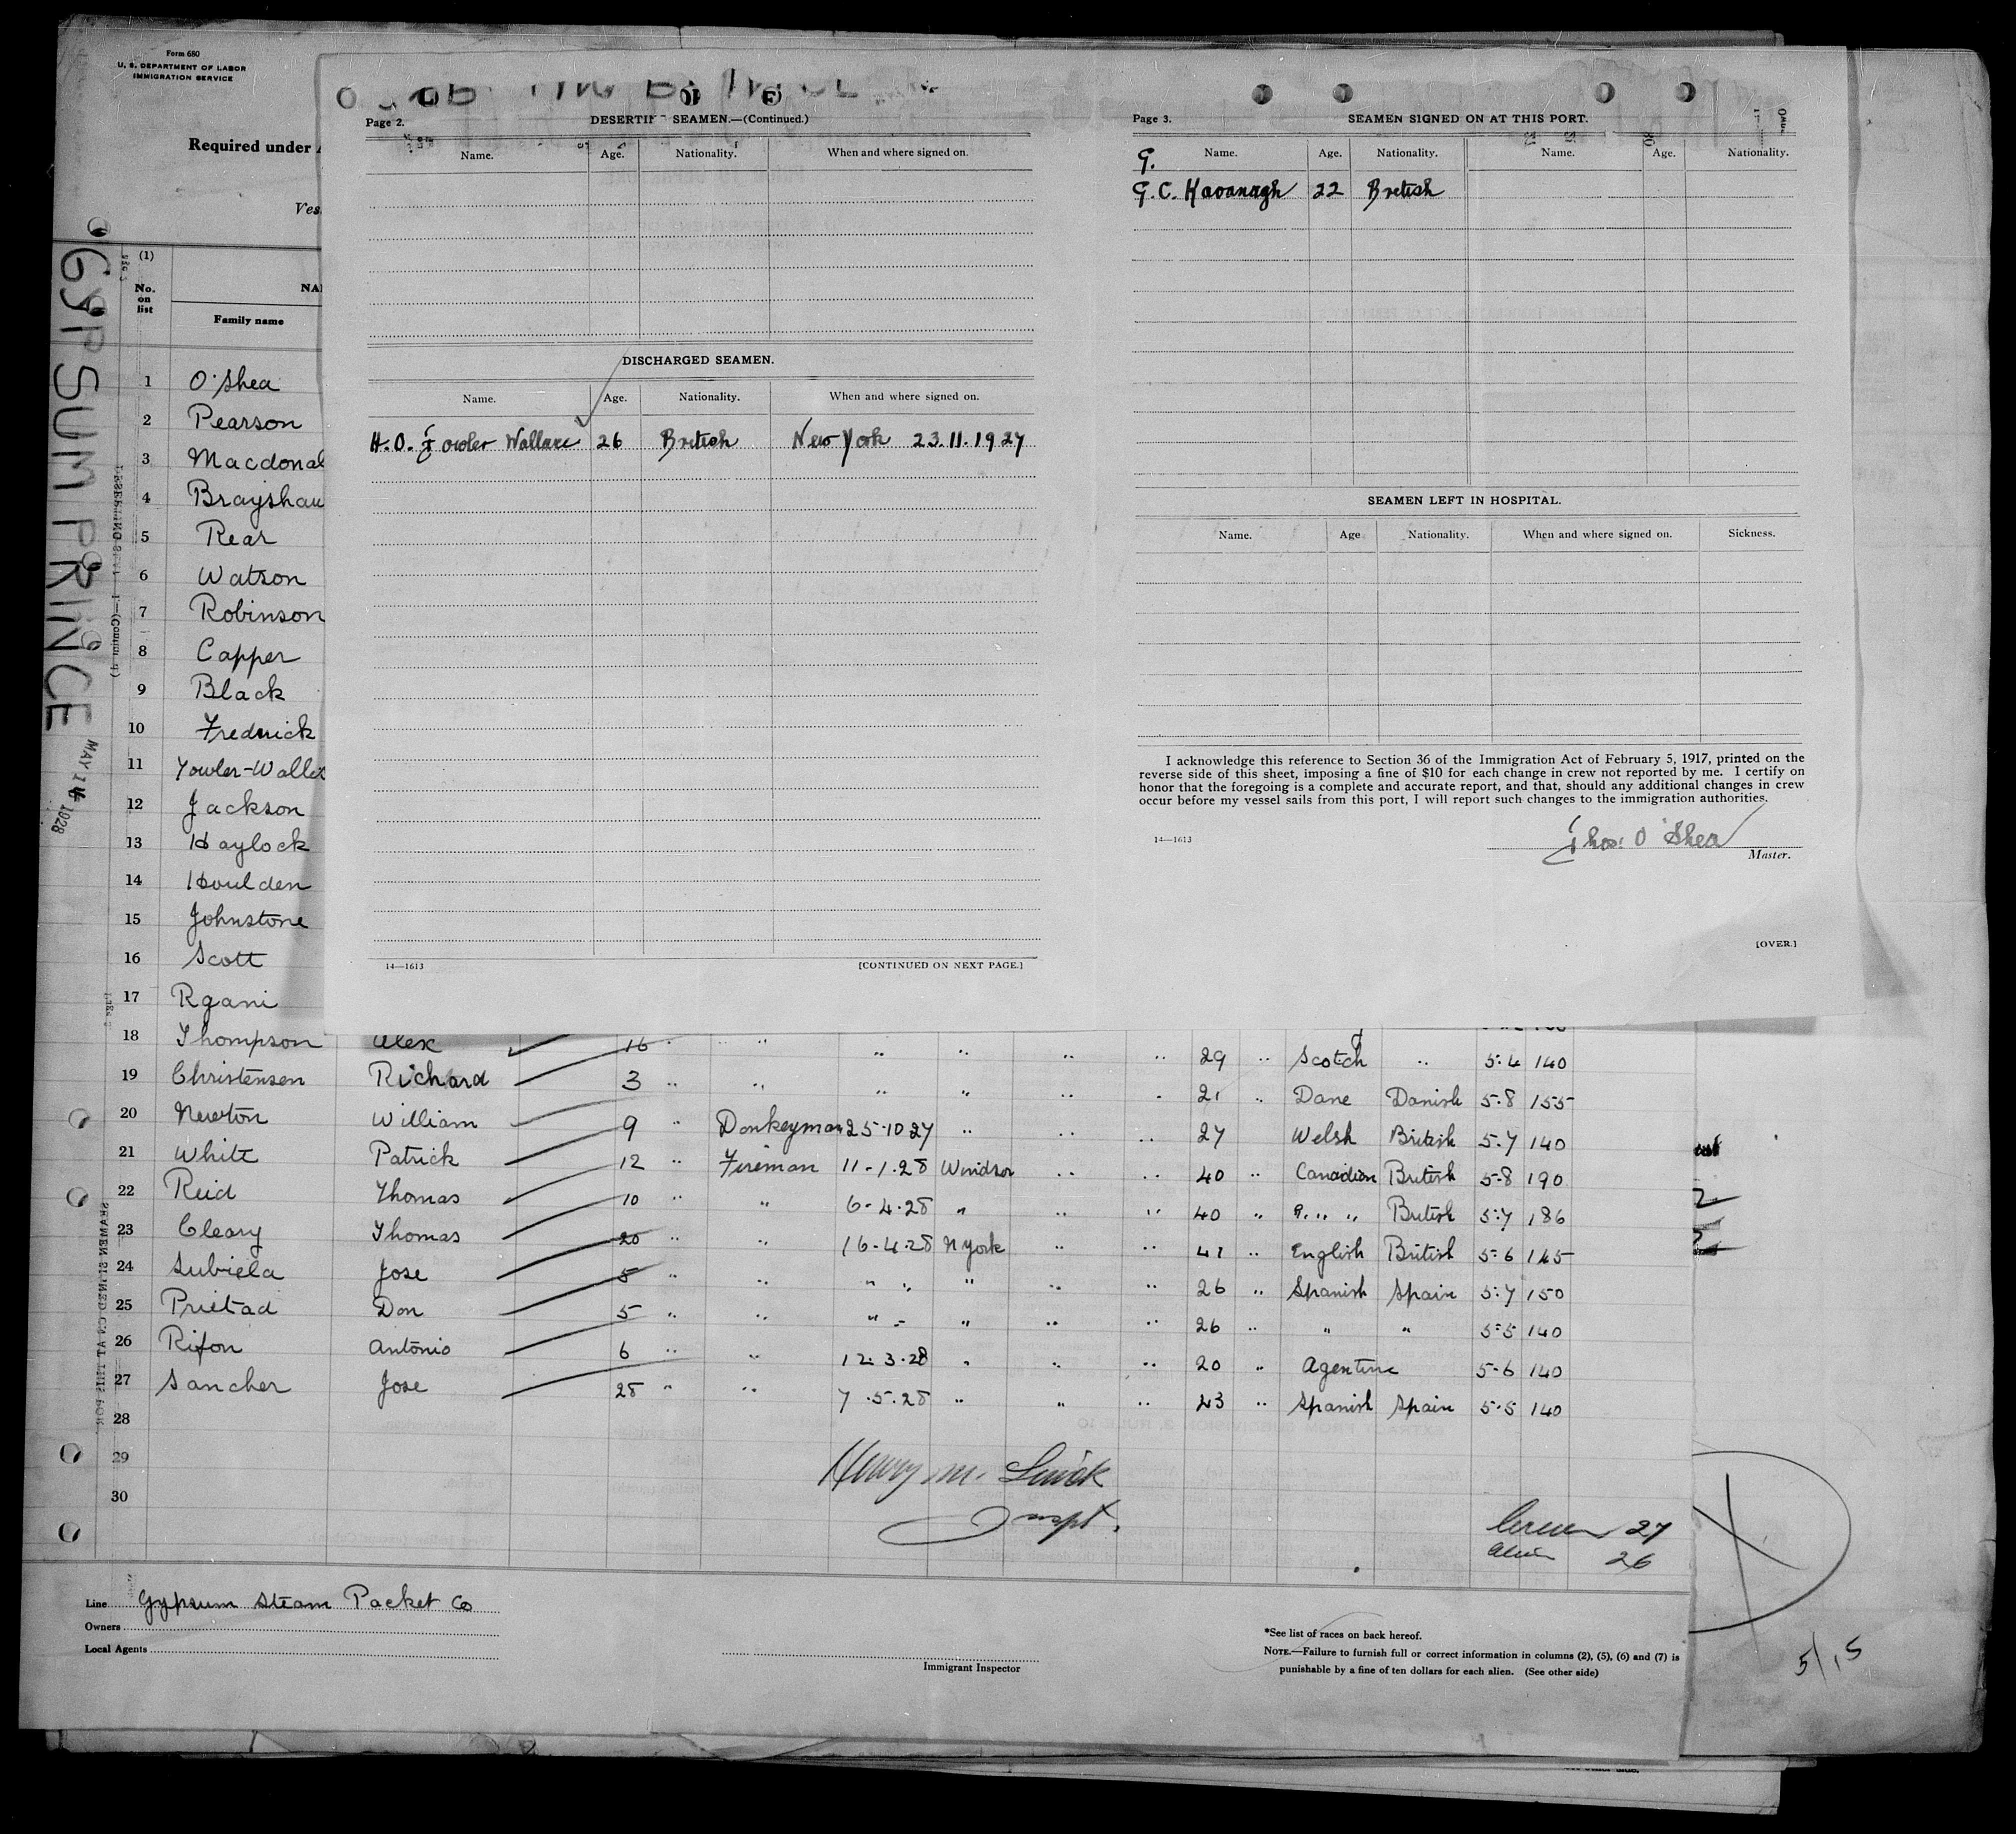 Form 680
U. S. DEPARTMENT OF LABOR
IMMIGRATION SERVICE
Required under
Ves
GYPSUM PRINCE
MAY 14 1928
(1)
No. on list
Family name
1 O'Shea
2 Pearson
3 Macdonal
4 Brayshaw
5 Rear
6 Watson
7 Robinson
8 Capper
9 Black
10 Fredrick
11 Fowler-Walla
12 Jackson
13 Haylock
14 Houlden
15 Johnstone
16 Scott
17 Rgani
Page 2. DESERTI SEAMEN.—(Continued.)
Name. Age. Nationality. When and where signed on.
DISCHARGED SEAMEN.
Name. Age. Nationality. When and where signed on.
H.O. Fowler Wallace 26 British New York 23.11.1927
14—1613 [CONTINUED ON NEXT PAGE.]
Page 3. SEAMEN SIGNED ON AT THIS PORT.
Name. Age. Nationality. Name. Age. Nationality.
G.
G.C. Kavanagh 22 British
SEAMEN LEFT IN HOSPITAL.
Name. Age Nationality. When and where signed on. Sickness.
I acknowledge this reference to Section 36 of the Immigration Act of February 5, 1917, printed on the
reverse side of this sheet, imposing a fine of $10 for each change in crew not reported by me. I certify on
honor that the foregoing is a complete and accurate report, and that, should any additional changes in crew
occur before my vessel sails from this port, I will report such changes to the immigration authorities.
14—1613
Thos. O'Shea
Master.
[OVER.]
18 Thompson Alex 16 " " " " " " 29 " Scotch " 5.4 140
19 Christensen Richard 3 " " " " " " 21 " Dane Danish 5.8 155
20 Newton William 9 " Donkeyman 25.10.27 " " " 27 " Welsh British 5.7 140
21 White Patrick 12 " Fireman 11.1.28 Windsor " " 40 " Canadian British 5.8 190
22 Reid Thomas 10 " " 6.4.28 " " " 40 " " " British 5.7 186
23 Cleary Thomas 20 " " 16.4.28 N York " " 41 " English British 5.6 145
24 Subiela Jose 5 " " " " " " " 26 " Spanish Spain 5.7 150
25 Prietad Don 5 " " " " " " 26 " " " 5.5 140
26 Rifon Antonio 6 " " 12.3.28 " " " 20 " Agentine 5.6 140
27 Sancher Jose 28 " " 7.5.28 " " " 23 " Spanish Spain 5.5 140
28
29
30
Henry M.
Inspt.
27
Alien 26
Line Gypsum Steam Packet Co
Owners
Local Agents
Immigrant Inspector
*See list of races on back hereof.
NOTE.—Failure to furnish full or correct information in columns (2), (5), (6) and (7) is
punishable by a fine of ten dollars for each alien. (See other side)
5/15